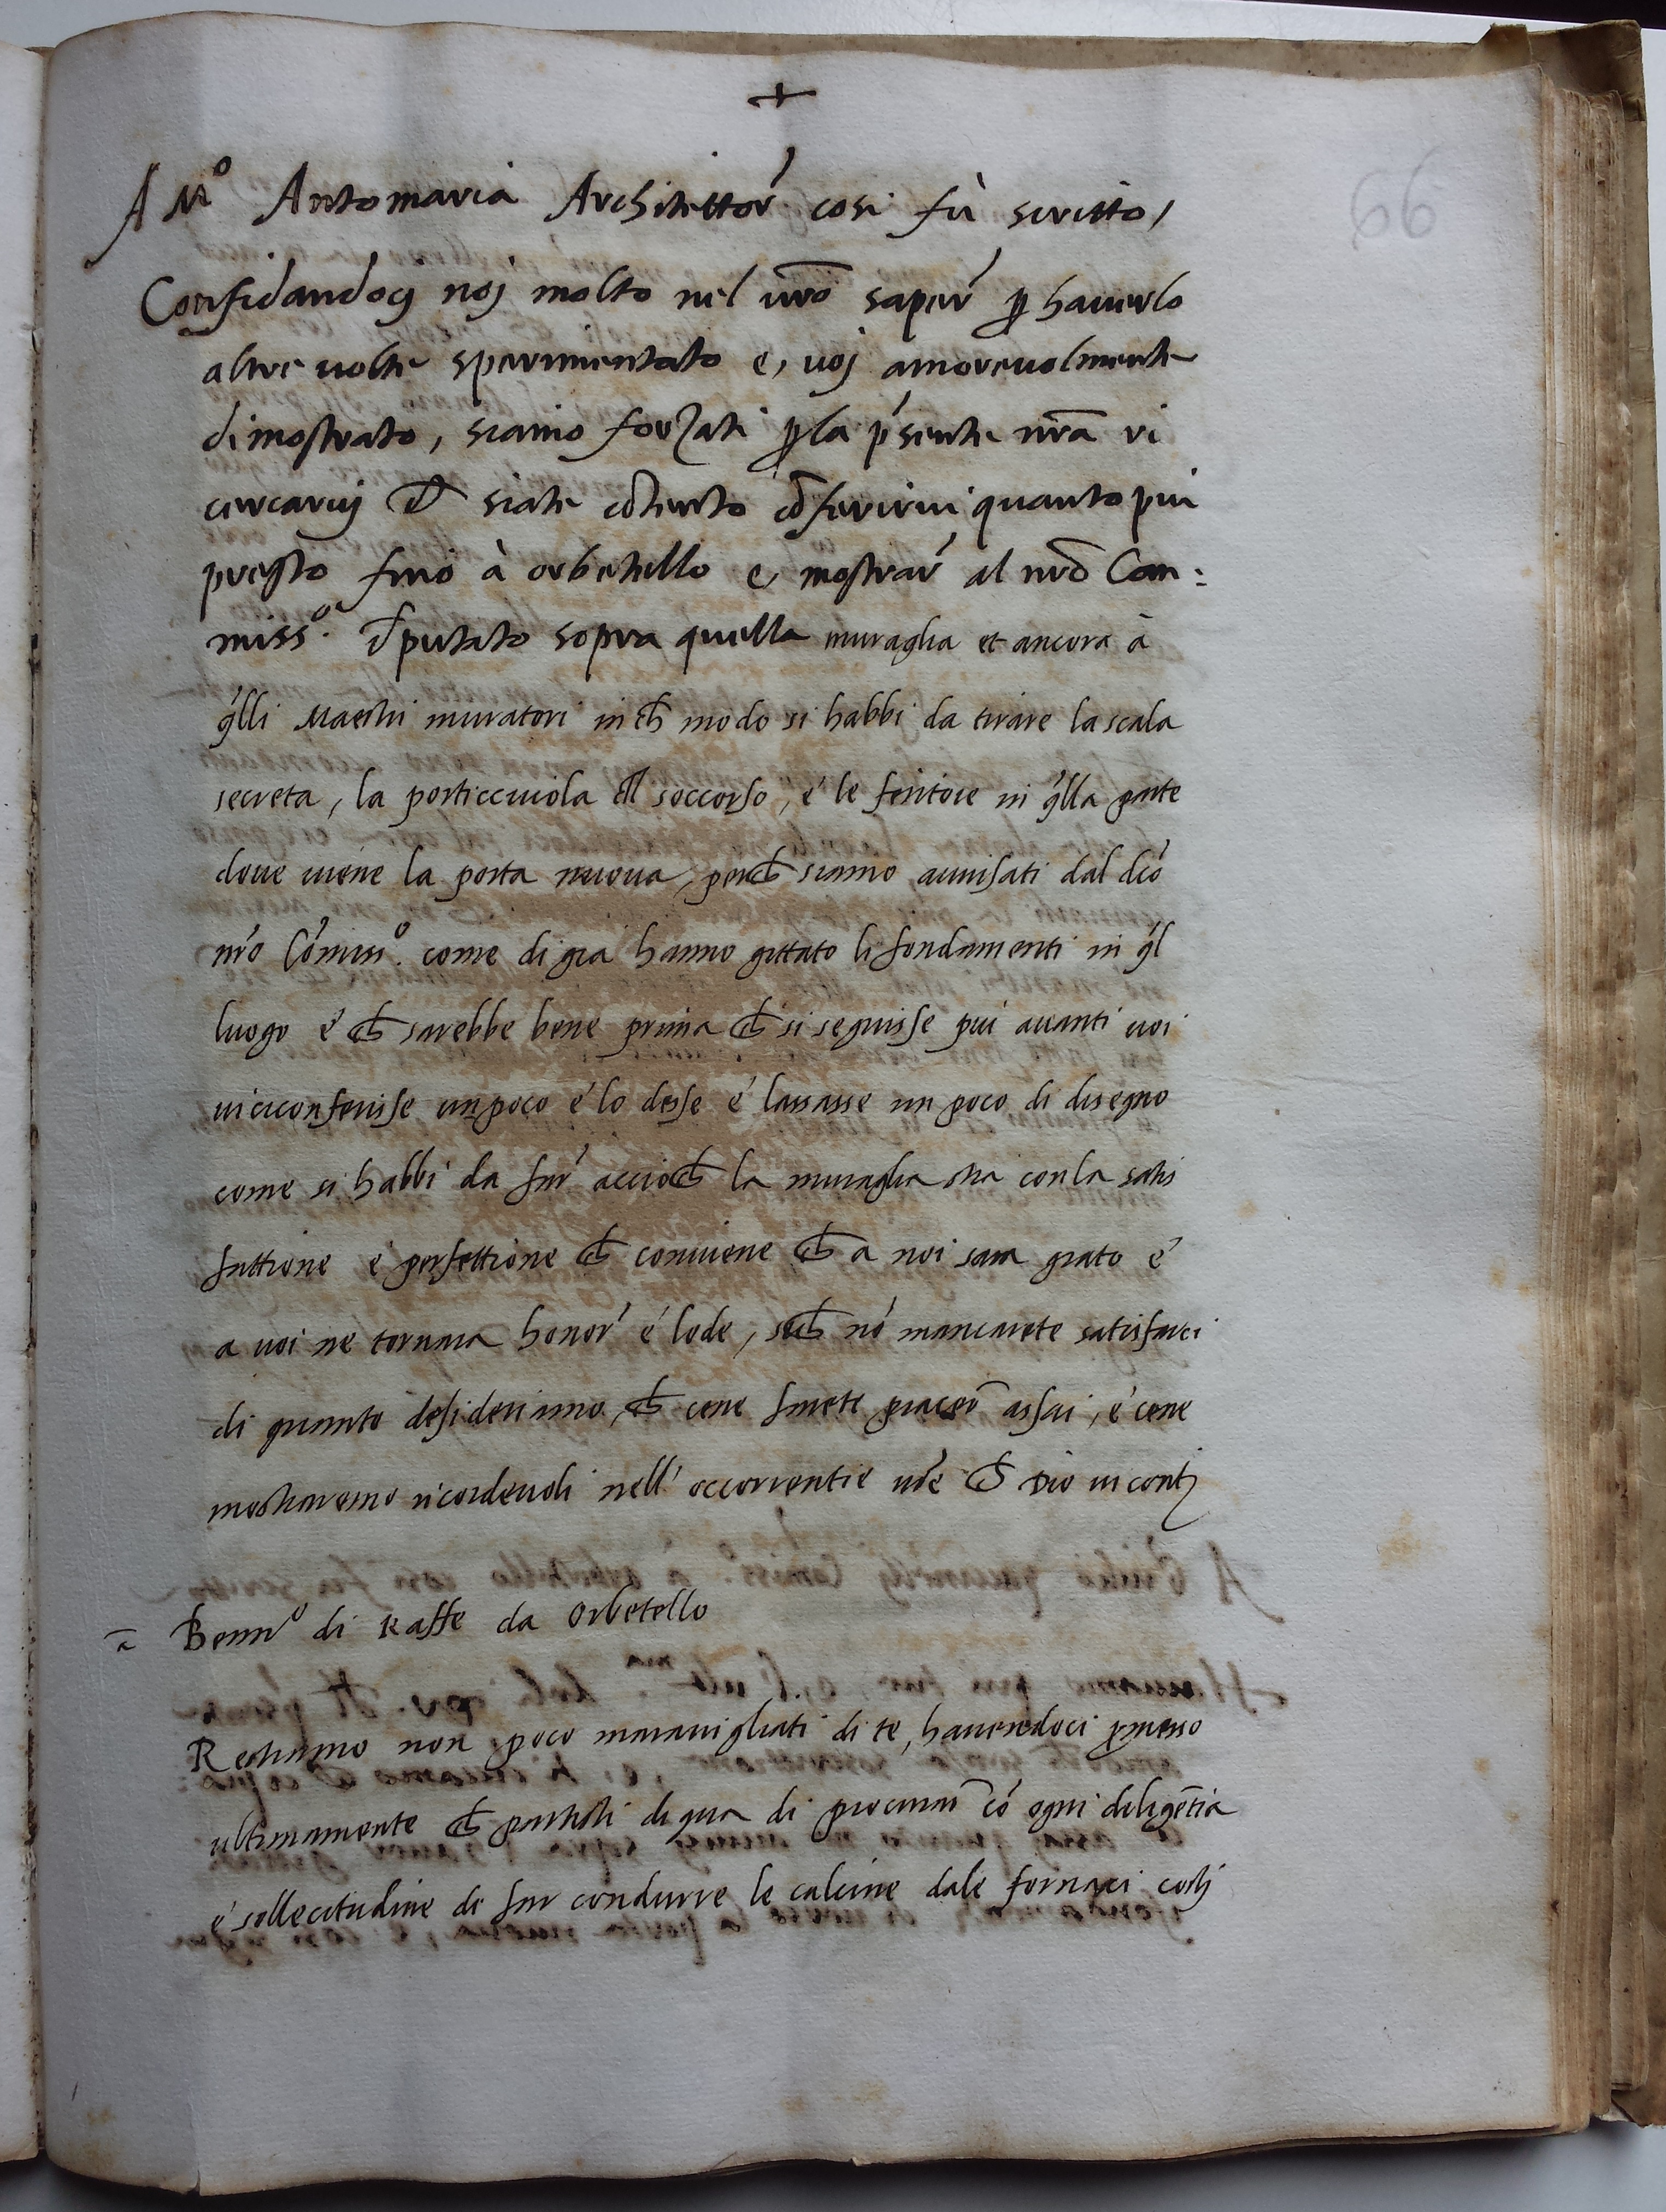 +
66
A M.o Antomaria Architettor' cosi fù scritto,
Confidandocj noj molto nel vr̄o saper' ꝑ hauerlo
altre uolte sperimentato e, voj amoreuolmente
dimostrato, siamo forzati ꝑ la p'sente nr̄a ri
cercaruj ch̄ siate cōtento cōferirui quanto piu
presto fino à orbetello e, mostrar' al nr̄o Com:
miss.o d̄putato sopra quella muraglia et ancora à
q̄lli Maestri muratori in ch̄ modo si habbi da tirare la scala
secreta, la porticciuola d̄l soccorso, é le feritoie in q̄lla parte
doue uiene la porta nuoua, perch̄ siamo auuisati dal dc̄o
nr̄o Cōmiss.o come di gia hanno gittato li fondamenti in q̄l
luogo é ch̄ sarebbe bene prima ch̄ si seguisse piu auanti uoi
ui ci conferisse un poco é lo desse é lassasse un poco di disegno
come si habbi da far' accioch̄ la muraglia stia con la satis
fattione é perfettione ch̄ conuiene ch̄ a noi sara grato é
a uoi ne tornara honor' é lode, sich̄ nō mancarete satisfarci
di quanto desideriamo, ch̄ cene farete piacer̄ assai, é cene
mostraremo ricordeuoli nell' occorrentie vr̄e ch̄ Dio ui contj
Bennr.o di Raffe da Orbetello
Restiamo non poco marauigliati di te, hauendoci ꝑmesso
ultimamente ch̄ partisti di qua di procurar̄ cō ogni diligētia
é sollecitudine di far condurre le calcine dale fornaci costj